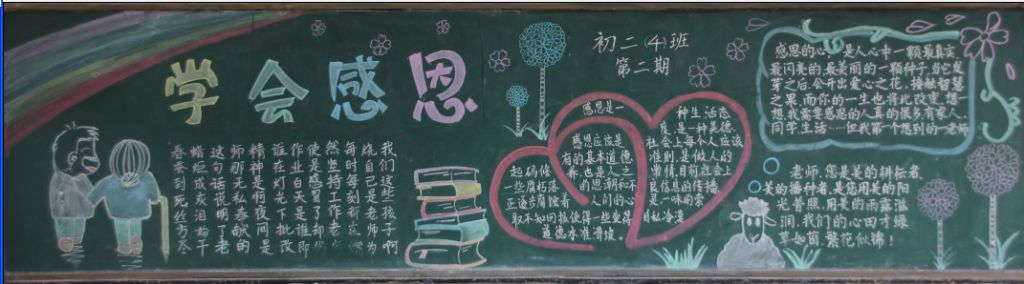 学会感恩
初二(4)班
第二期
我们这些孩子啊
烧自己是老师为
每时每刻新
然坚持工作老
使是感冒了却
作业白天是谁即
谁在灯光下批改
精神是特夜间是
师那无私奉献的
这句话说明了老
蜡炬成灰泪始干
春蚕到死丝方尽
感恩是一
种生活态
度,是一种美德,
感恩应该是
社会上每个人应该
有的基本道德
准则,是做人的
起码修养,也是人之
常情,目前社会上
一些腐朽落
的思潮和不
良信息的传播,
正逐步腐蚀着
人们的心
是一味的索
取不知回报使得一些变得
自私冷漠
道德水准滑坡。
感恩的心,是人心中一颗最真实
最闪亮的,最美丽的一颗种子,当它发
芽之后,会开出爱心之花,接触智慧
之果,而你的一生也将此改变,想一
想,我需要感恩的人真的很多有家人,
同学生活...但我第一个想到的一老师
老师,您是美的耕耘者,
美的播种者,是您用美的阳
光普照,用美的雨露滋
润,我们的心田才绿
草如茵,繁花似锦!